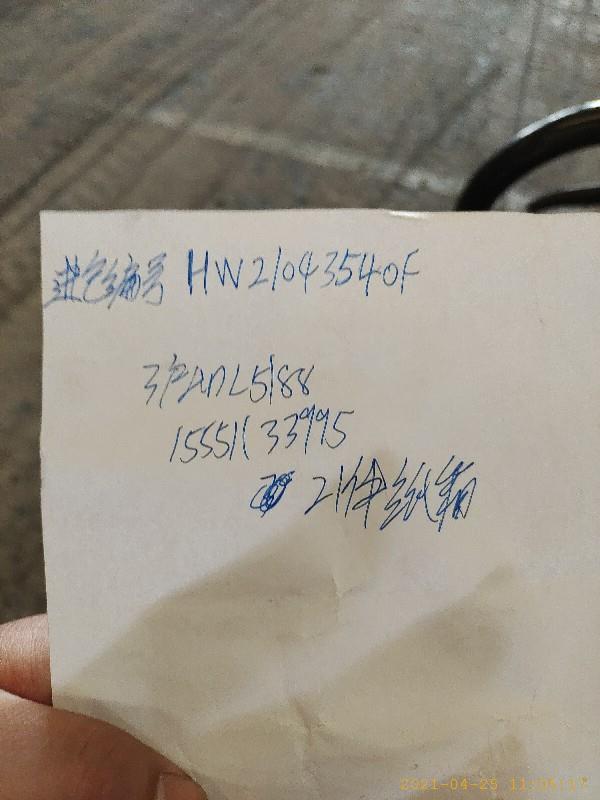 进仓编号 HW2104354OF
沪ADL5188
15551133995
21件纸箱
2021-04-25 11:05:17